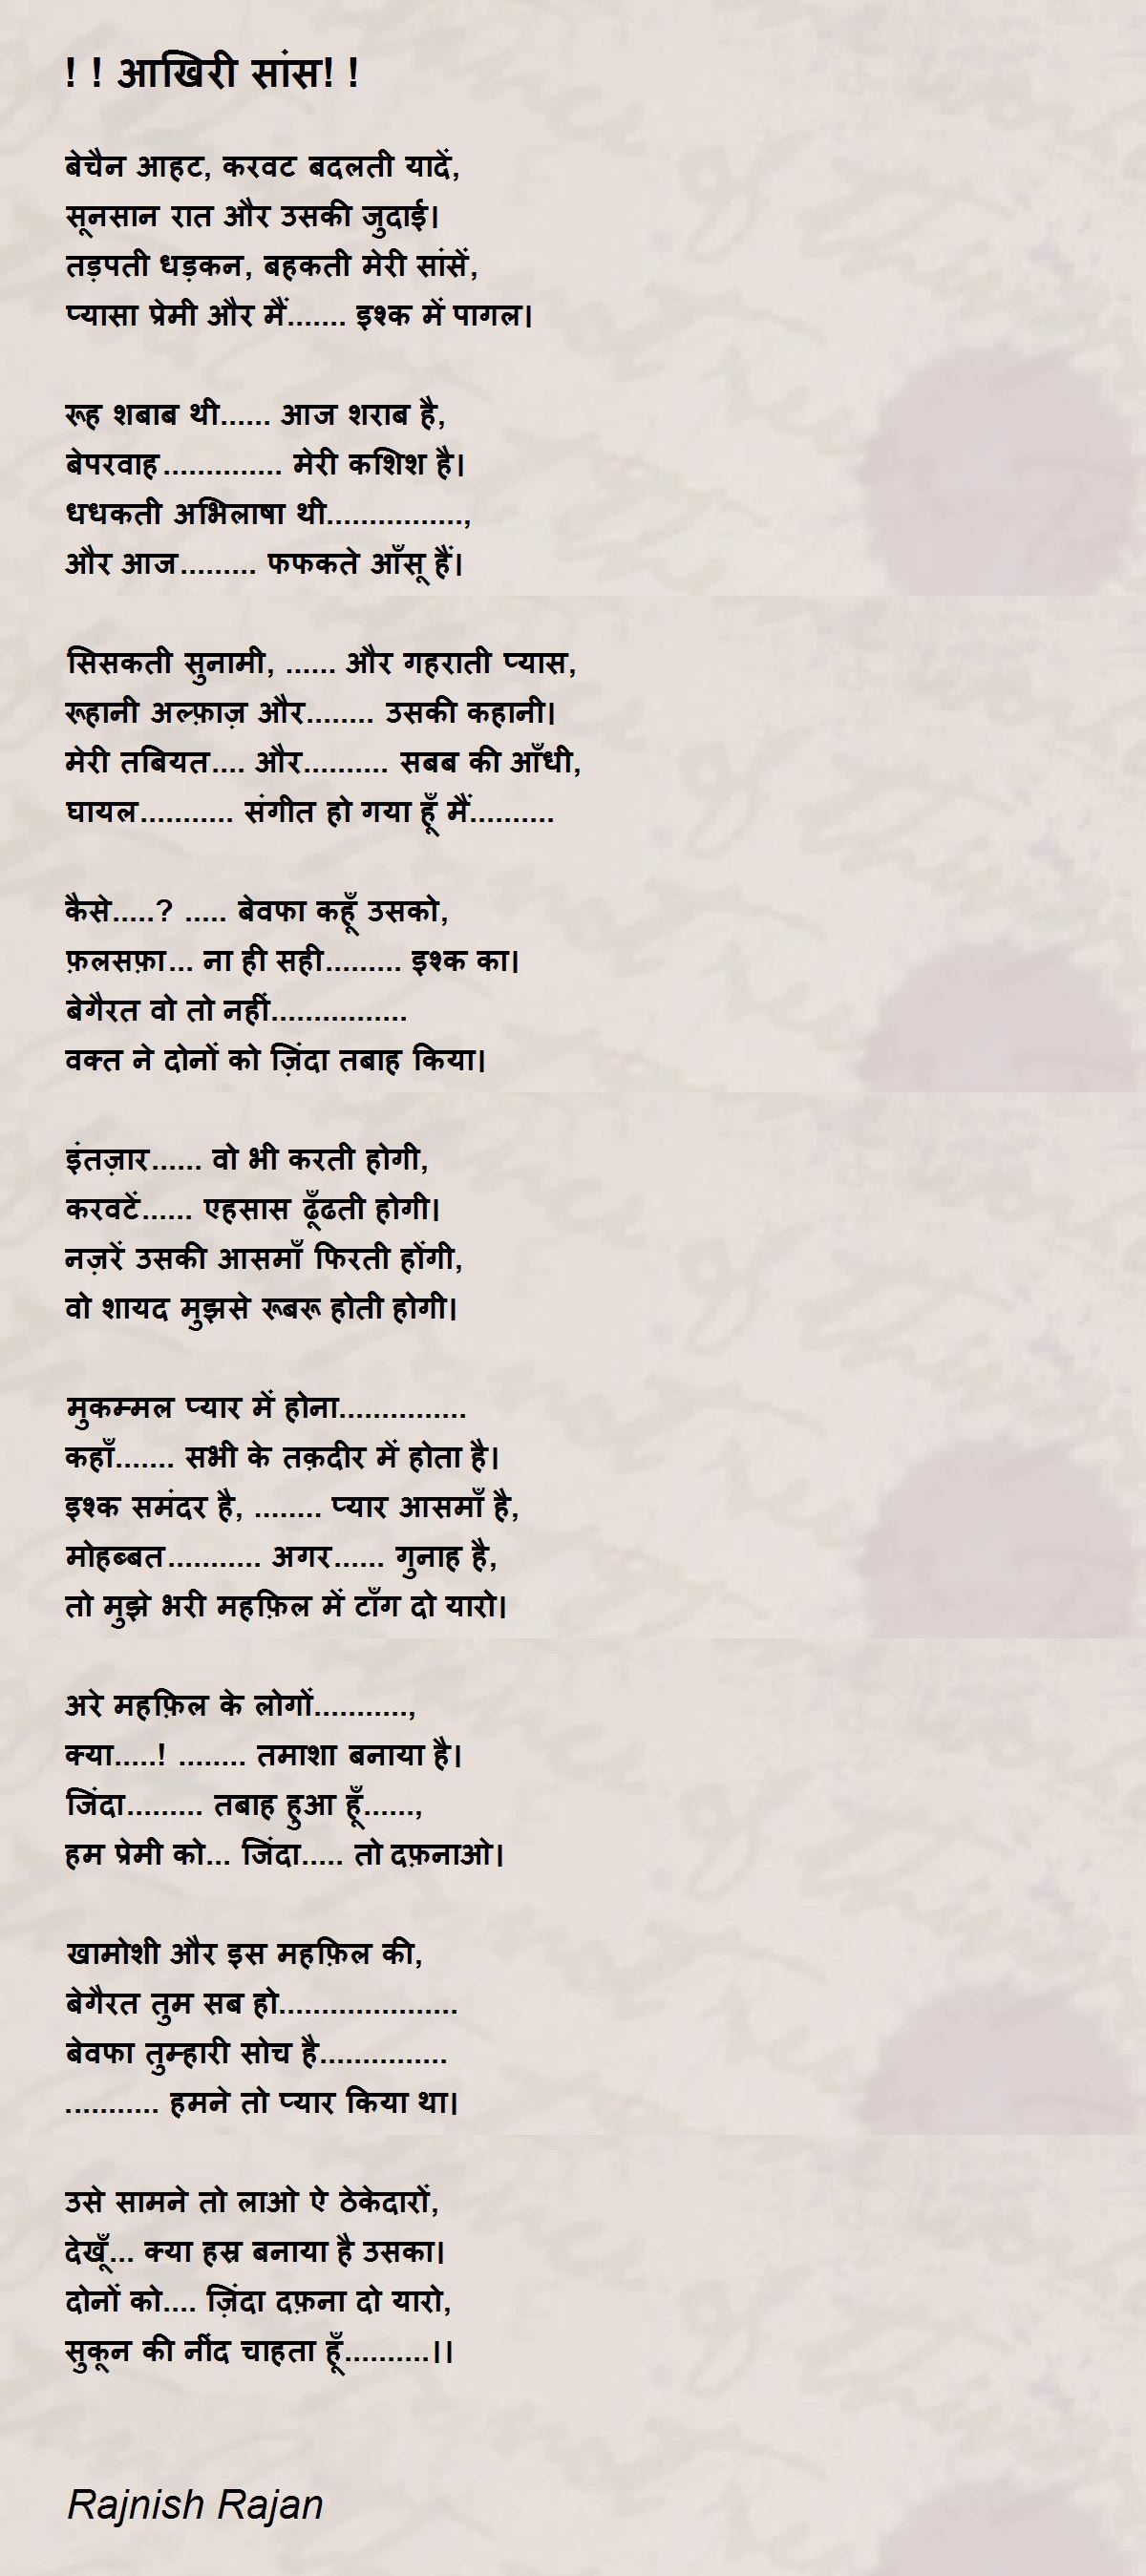 ! ! आखिरी सांस! !
बेचैन आहट, करवट बदलती यादें,
सूनसान रात और उसकी जुदाई।
तड़पती धड़कन, बहकती मेरी सांसें,
प्यासा प्रेमी और मैं....... इश्क में पागल।
रूह शबाब थी...... आज शराब है,
बेपरवाह.............. मेरी कशिश है।
धधकती अभिलाषा थी................,
और आज......... फफकते आँसू हैं।
सिसकती सुनामी, ...... और गहराती प्यास,
रूहानी अल्फ़ाज़ और........ उसकी कहानी।
मेरी तबियत.... और.......... सबब की आँधी,
घायल........... संगीत हो गया हूँ मैं..........
कैसे.....? ..... बेवफा कहूँ उसको,
फ़लसफ़ा... ना ही सही......... इश्क का।
बेगैरत वो तो नहीं................
वक्त ने दोनों को ज़िंदा तबाह किया।
इंतज़ार...... वो भी करती होगी,
करवटें...... एहसास ढूँढती होगी।
नज़रें उसकी आसमाँ फिरती होंगी,
वो शायद मुझसे रूबरू होती होगी।
मुकम्मल प्यार में होना...............
कहाँ....... सभी के तक़दीर में होता है।
इश्क समंदर है, ........ प्यार आसमाँ है,
मोहब्बत........... अगर...... गुनाह है,
तो मुझे भरी महफ़िल में टाँग दो यारो।
अरे महफ़िल के लोगों...........,
क्या.....! ........ तमाशा बनाया है।
जिंदा......... तबाह हुआ हूँ......,
हम प्रेमी को... जिंदा..... तो दफ़नाओ।
खामोशी और इस महफ़िल की,
बेगैरत तुम सब हो.....................
बेवफा तुम्हारी सोच है...............
........... हमने तो प्यार किया था।
उसे सामने तो लाओ ऐ ठेकेदारों,
देखूँ... क्या हस्र बनाया है उसका।
दोनों को.... ज़िंदा दफ़ना दो यारो,
सुकून की नींद चाहता हूँ..........।।
Rajnish Rajan